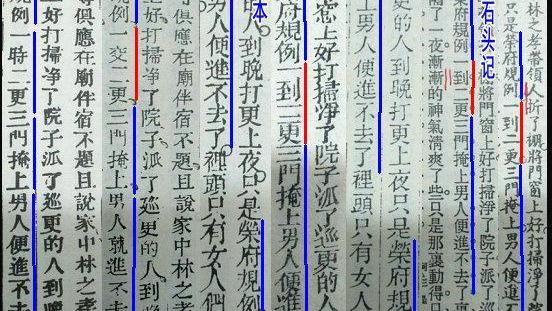 林之孝帶領人拆了棚將門窗上好打掃淨了
只是榮府規例一到二更三門掩上男人便進
石头记
將門窗上好打掃淨了院子派了巡
榮府規例一到二更三門掩上男人便進不去了
了一夜漸漸的神氣清爽了些只是那裏動得
的人到晚打更上夜只是榮府規
上男人便進不去了裡頭只有女人
窗上好打掃淨了院子派了巡更的人
榮府規例一到二更三門掩上男人便進
本
的人到晚打更上夜只是榮府規例
男人便進不去了裡頭只有女人們
俱應在廟伴宿不題且說家中林之孝
上好打掃淨了院子派了巡更的人到
規例一交二更三門掩上男人就進
得俱應在廟伴宿不題且說家中林之孝
上好打掃淨了院子派了巡更的人到晚
規例一時二更三門掩上男人便進不去